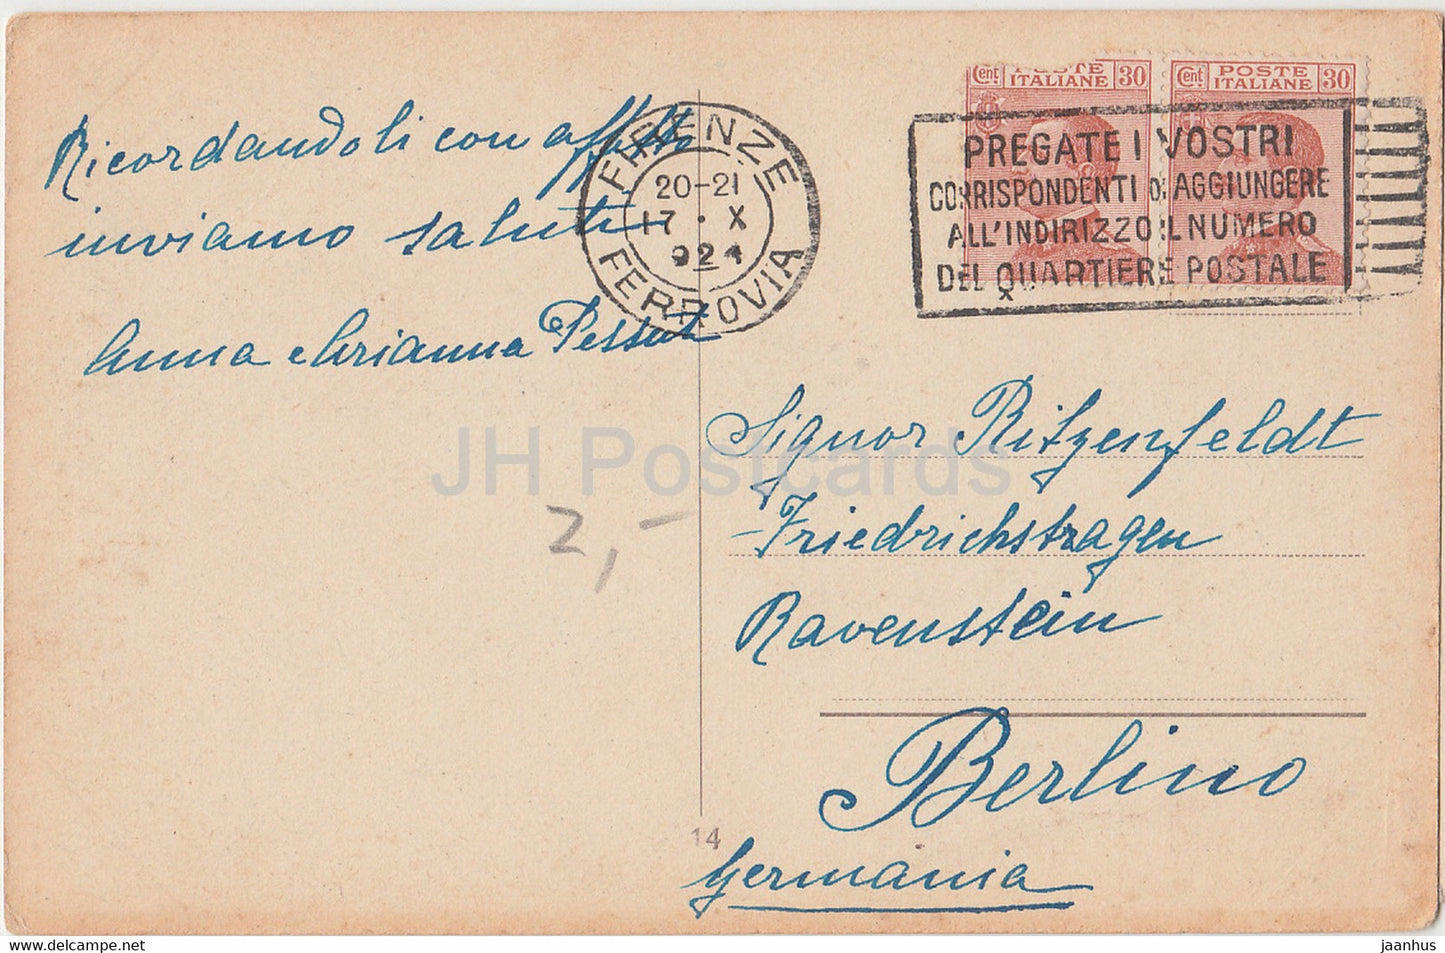 Ricordandoli con affetto
inviamo saluti
Anna e Arianna
FIRENZE
20-21
17 · X
924
FERROVIA
Cent POSTE ITALIANE 30
Cent POSTE ITALIANE 30
PREGATE I VOSTRI
CORRISPONDENTI DI AGGIUNGERE
ALL'INDIRIZZO IL NUMERO
DEL QUARTIERE POSTALE
Signor Ritzenfeldt
Friedrichstragen
Ravenstein
Berlino
Germania
2,-
14
JH Postcards
delcampe.net
jaanhus